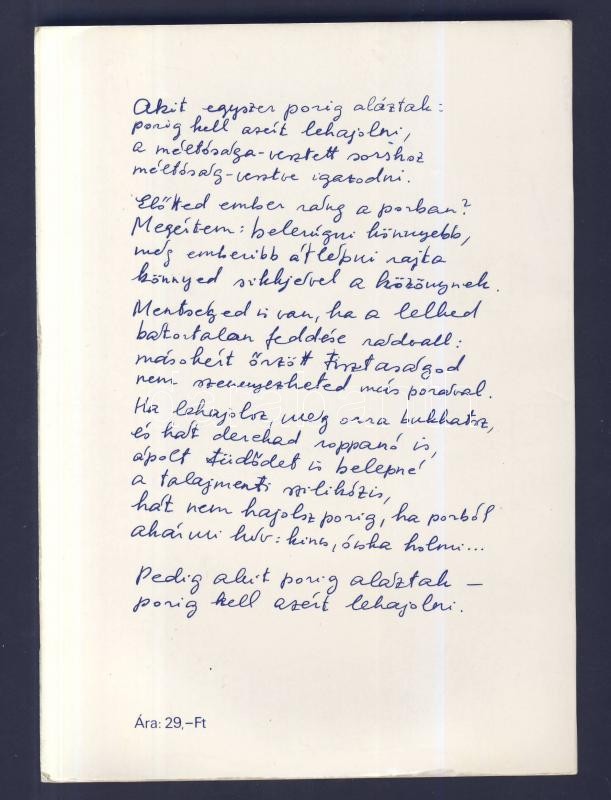 Akit egyszer porig aláztak:
porig kell azért lehajolni,
a méltósága-vesztett sorshoz
méltóság-vesztve igazodni.
Előtted ember ráng a porban?
Megértem: belerúgni könnyebb,
még emberibb átlépni rajta
könnyed sikkjével a közönynek.
Mentséged is van, ha a lelked
bátortalan feddése rádvall:
másokért őrzött tisztaságod
nem szennyezheted más porával.
Ha lehajolsz, még orra bukhatsz,
és hát derekad roppanó is,
ápolt tüdődet is belepné
a talajmenti szilikózis,
hát nem hajolsz porig, ha porból
akármi hív: kincs, ócska holmi...
Pedig akit porig aláztak –
porig kell azért lehajolni.
Ára: 29,–Ft